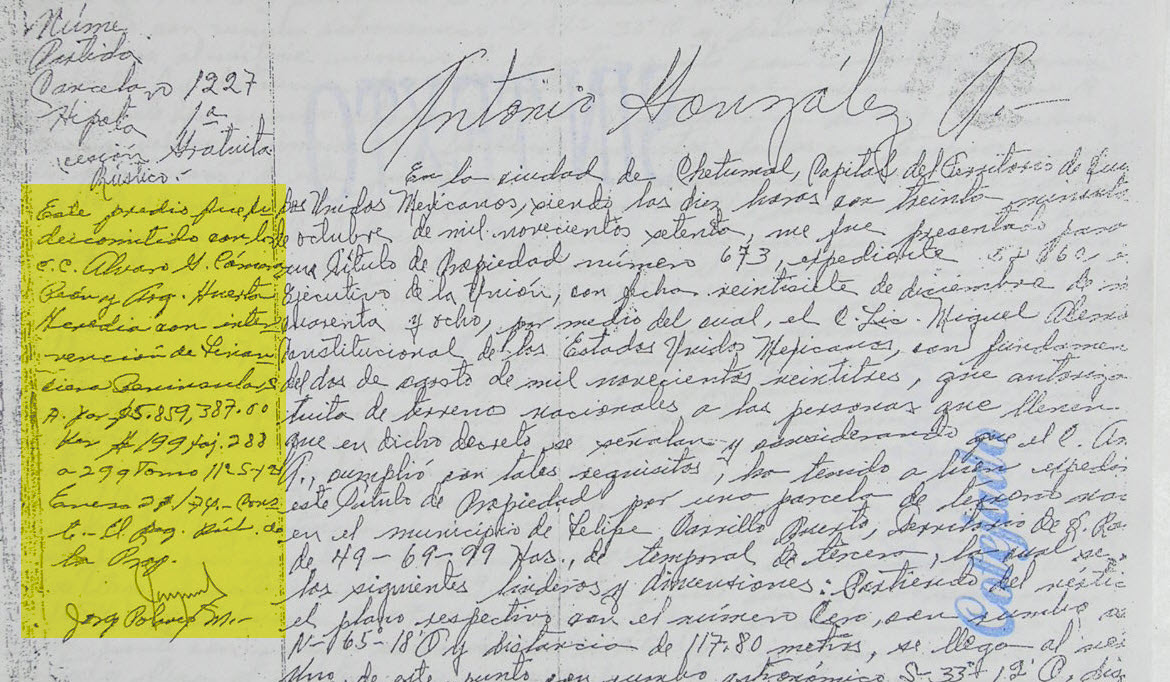 Núme
Partida
Parcela No 1227
Hipota 1a
cesión Gratuita
Rústico.-
Este predio fue fi
deicomitido con los
C.C. Alvaro G. Cámara
Peón y Arq. Huerta
Heredia con inter
vención de Finan
ciera Peninsular S.
A. por $5.859,387.00
# 199 foj. 288
a 299 Tomo 11º S-1ª
Enero 28/74.- Cons
te.- El Reg. Púb. de
la Prop.
Jorg Polanco M.-
Antonio González P.-
En la ciudad de Chetumal, Capital del Territorio de Quin
dos Unidos Mexicanos, siendo las diez horas con treinta minutos
de octubre de mil novecientos setenta, me fue presentado para
un Título de Propiedad número 673, expediente
Ejecutivo de la Unión, con fecha veintisiete de diciembre de m
cuarenta y ocho, por medio del cual, el C. Lic. Miguel Alemá
Constitucional de los Estados Unidos Mexicanos, con fundamen
del dos de agosto de mil novecientos veintitres, que autoriza
tuita de terreno nacionales a las personas que llenen
que en dicho decreto se señalan y considerando que el C. An
P., cumplió con tales requisitos, ha tenido a bien expedir
este Título de Propiedad por una parcela de terreno na
en el municipio de Felipe Carrillo Puerto, Territorio de Q. Ro.
de 49-69-99 Has., de temporal de tercera, la cual se
los siguientes linderos y dimensiones: Partiendo del vértic
el plano respectivo con el número Cero, con rumbo a
N-65º-18' O y distancia de 117.80 metros, se llega al vér
Uno, de este punto con rumbo astronómico S-33º 12' O, dis
Cotejado